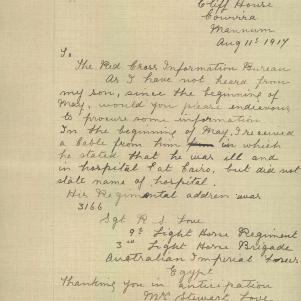 Cliff House
Cowirra
Mannum
Aug 11st 1917
To.
The Red Cross Information Bureau
As I have not heard from
my son, since the beginning of
May, would you please endeavour
to procure some information
In the beginning of May, I received
a Cable from him in which
he stated that he was ill and
in hospital at Cairo, but did not
state name of hospital.
His Regimental address was
3166
Sgt R S Love
9th Light Horse Regiment
3rd Light Horse Brigade
Australian Imperial Forces
Egypt
Thanking you in anticipation
Mrs Stewart Love